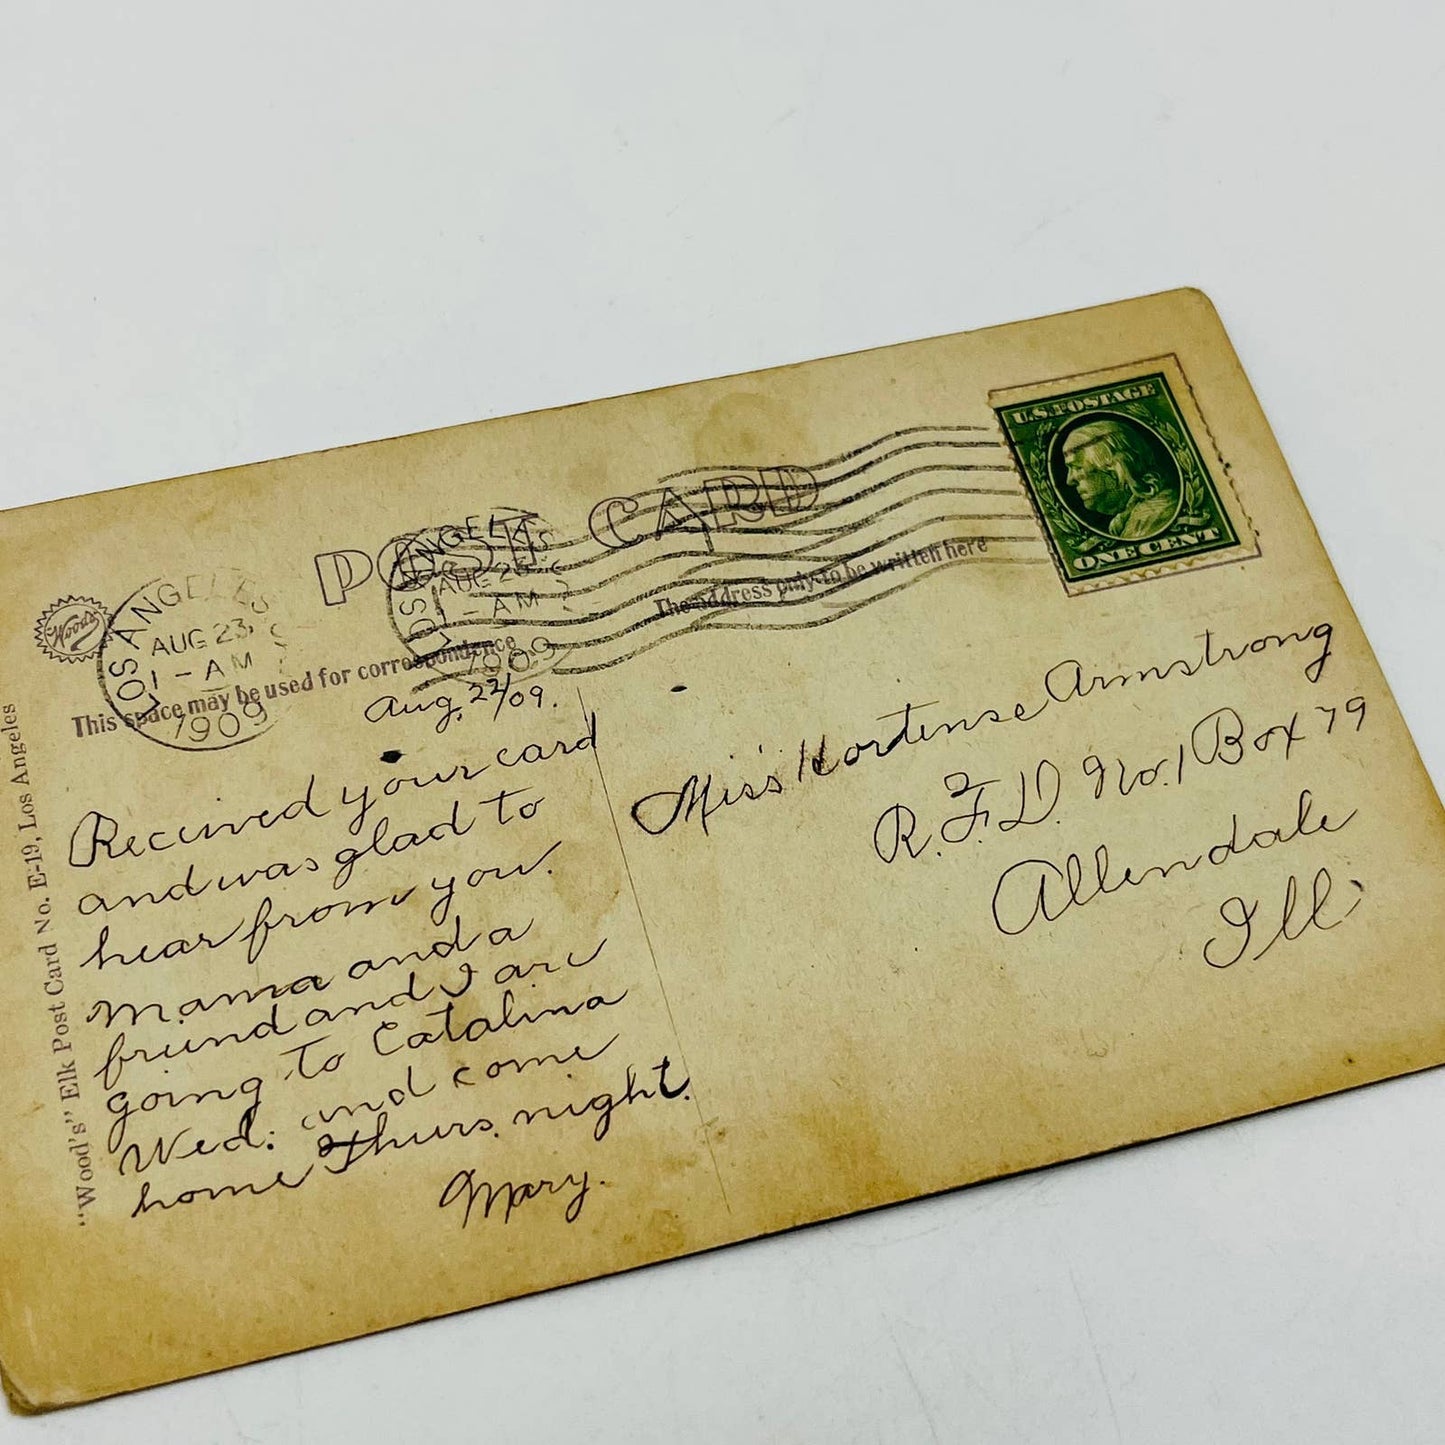 POST CARD
Wood's
LOS ANGELES
AUG 23
1 - AM
1909
LOS ANGELES
AUG 23
1 - AM
1909
U.S. POSTAGE
ONE CENT
This space may be used for correspondence
The address only to be written here
"Wood's" Elk Post Card No. E-19, Los Angeles
Aug. 22/09.
Received your card
and was glad to
hear from you.
Mama and a
friend and I are
going to Catalina
Wed. and come
home Thurs. night.
Mary.
Miss Hortense Armstrong
R.F.D. No. 1 Box 79
Allendale
Ill.